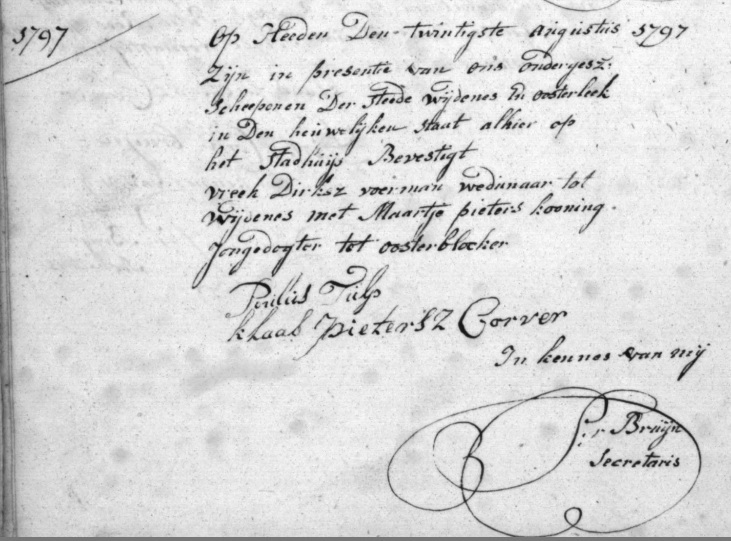 1797
Op Heeden Den twintigste augustus 1797
Zijn in presentie van ons ondergesz:
Scheepenen Der Steede Wijdenes En oosterleek
in Den heuwelijken staat alhier op
het Stadhuijs Bevestigt
vreek Dirksz voerman wedunaar tot
Wijdenes met Maartje pieters kooning
Jongedogter tot oosterblocker
Paulus Tulp
klaas pietersz Corver
In kennes van mij
P:r Bruijn
Secretaris